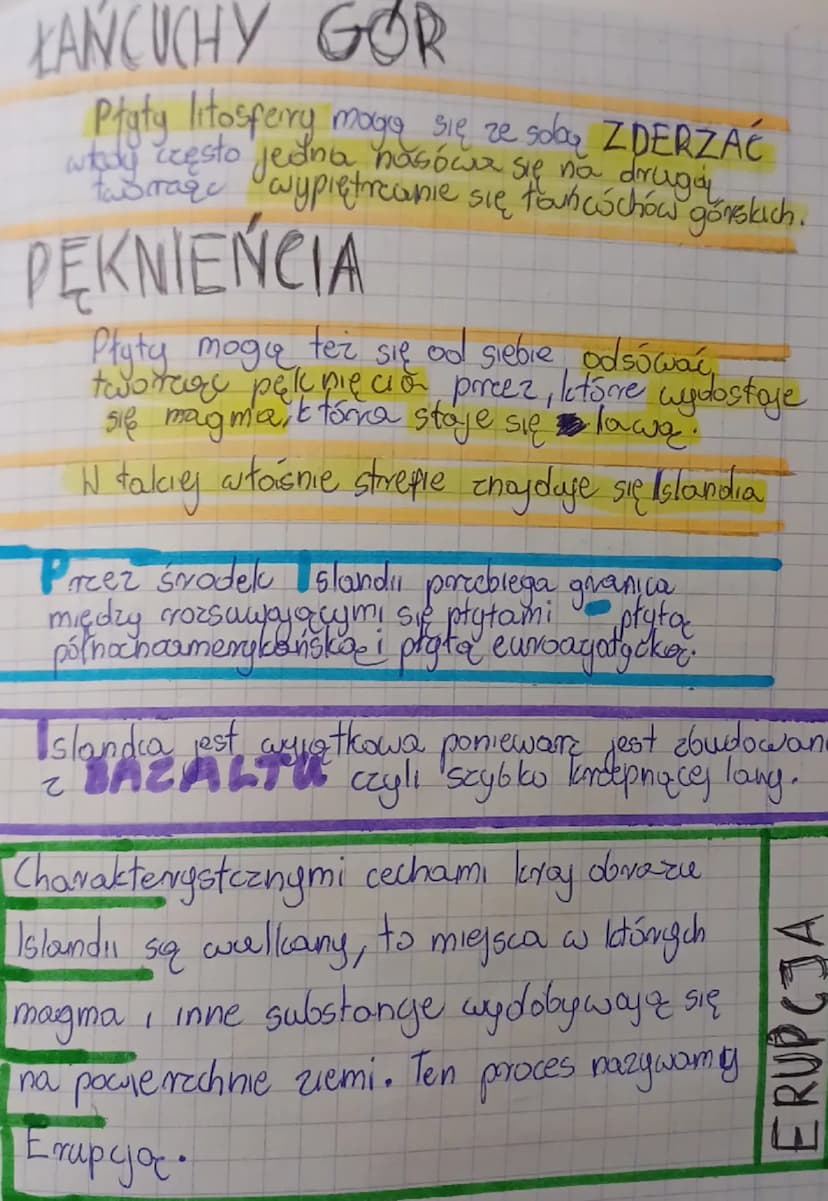 ŁAŃCUCHY GÓR
Płyty litosfery mogą się ze sobą ZDERZAĆ
wtedy często jedna nasówa się na drugą
tworząc wypiętrzanie się łańcóchów górskich.
PĘKNIEŃCIA
Płyty mogą też się od siebie odsówać
tworząc pęknięcia przez, które wydostaje
się magma, która staje się lawą.
W takiej właśnie strefie znajduje się Islandia
Przez środek Islandii przebiega granica
między rozsuwającymi się płytami - płytą
północnoamerykańską i płytą euroazjatycką.
Islandia jest wyjątkowa ponieważ jest zbudowan
z BAZALTU czyli szybko krzepnącej lawy.
Charakterystcznymi cechami kraj obrazu
Islandii są wulkany, to miejsca w których
magma i inne substancje wydobywają się
na powierzchnie ziemi. Ten proces nazywamy
Erupcją.
ERUPCJA